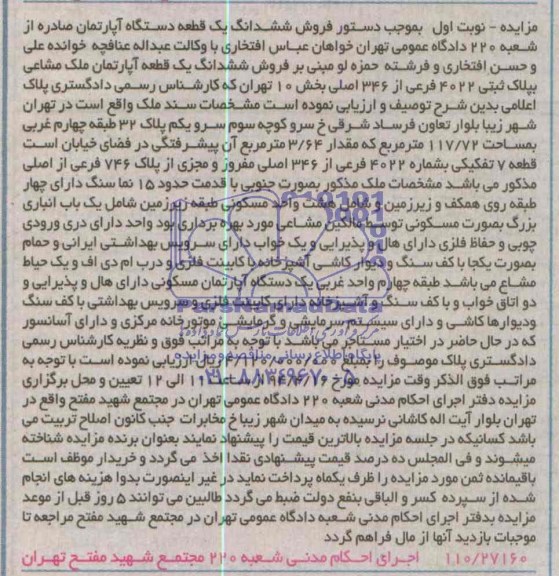 مزایده - نوبت اول بموجب دستور فروش ششدانگ یک قطعه دستگاه آپارتمان صادره از
شعبه ۲۲۰ دادگاه عمومی تهران خواهان عباس افتخاری با وکالت عبداله عنافچه خوانده علی
و حسن افتخاری و فرشته حمزه لو مبنی بر فروش ششدانگ یک قطعه آپارتمان ملک مشاعی
بپلاک ثبتی ۴۰۲۲ فرعی از ۳۴۶ اصلی بخش ۱۰ تهران که کارشناس رسمی دادگستری پلاک
اعلامی بدین شرح توصیف و ارزیابی نموده است مشخصات سند ملک واقع است در تهران
شهر زیبا بلوار تعاون فرساد شرقی خ سرو کوچه سوم سرو یکم پلاک ۳۲ طبقه چهارم غربی
بمساحت ۱۱۷/۷۲ مترمربع که مقدار ۳/۶۴ مترمربع آن پیشرفتگی در فضای خیابان است
قطعه ۷ تفکیکی بشماره ۴۰۲۲ فرعی از ۳۴۶ اصلی مفروز و مجزی از پلاک ۷۴۶ فرعی از اصلی
مذکور می باشد مشخصات ملک مذکور بصورت جنوبی با قدمت حدود ۱۵ نما سنگ دارای چهار
طبقه روی همکف و زیرزمین و شامل هشت واحد مسکونی طبقه زیرزمین شامل یک باب انباری
بزرگ بصورت مسکونی توسط مالکین مشاعی مورد بهره برداری بود واحد دارای دری ورودی
چوبی و حفاظ فلزی دارای هال و پذیرایی و یک خواب دارای سرویس بهداشتی ایرانی و حمام
بصورت یکجا با کف سنگ و دیوار کاشی آشپزخانه با کابینت فلزی و درب ام دی اف و یک حیاط
مشاع می باشد طبقه چهارم واحد غربی یک دستگاه آپارتمان مسکونی دارای هال و پذیرایی و
دو اتاق خواب و با کف سنگ و آشپزخانه دارای کابینت فلزی و سرویس بهداشتی با کف سنگ
و دیوارها کاشی و دارای سیستم سرمایشی و گرمایشی موتورخانه مرکزی و دارای آسانسور
که در حال حاضر در اختیار مستاجر می باشد با توجه به مراتب فوق و نظریه کارشناس رسمی
دادگستری پلاک موصوف ریال ارزیابی نموده است با توجه به
مراتب فوق الذکر وقت مزایده مورخ ساعت ۱۱ الی ۱۲ تعیین و محل برگزاری
مزایده دفتر اجرای احکام مدنی شعبه ۲۲۰ دادگاه عمومی تهران در مجتمع شهید مفتح واقع در
تهران بلوار آیت اله کاشانی نرسیده به میدان شهر زیبا خ مخابرات جنب کانون اصلاح تربیت می
باشد کسانیکه در جلسه مزایده بالاترین قیمت را پیشنهاد نمایند بعنوان برنده مزایده شناخته
میشوند و فی المجلس ده درصد قیمت پیشنهادی نقدا اخذ می گردد و خریدار موظف است
باقیمانده ثمن مورد مزایده را ظرف یکماه پرداخت نماید در غیر اینصورت بدوا هزینه های انجام
شده از سپرده کسر و الباقی بنفع دولت ضبط می گردد طالبین می توانند ۵ روز قبل از موعد
مزایده بدفتر اجرای احکام مدنی شعبه دادگاه عمومی تهران در مجتمع شهید مفتح مراجعه تا
موجبات بازدید آنها از مال فراهم گردد
۱۱۰/۲۷۱۶۰ اجرای احکام مدنی شعبه ۲۲۰ مجتمع شهید مفتح تهران
ParsNamadData
پایگاه اطلاع رسانی مناقصه و مزایده